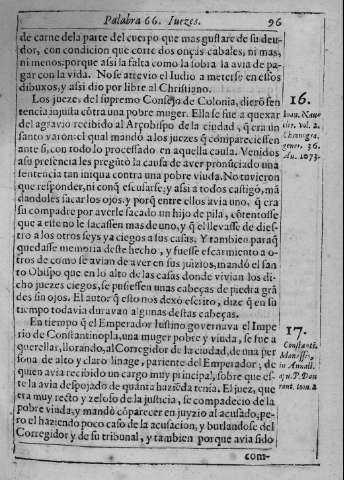 Palabra 66. Iuezes. 96
de carne dela parte del cuerpo que mas gustare de su deu-
dor, con condicion que corte dos onças cabales, ni mas,
ni menos: porque assi la falta como la sobra la avia de pa-
gar con la vida. No se atrevio el Iudio a meterse en essos
dibuxos, y assi dio por libre al Christiano.
Los juezes del supremo Consejo de Colonia, dierõ sen
tencia injusta cõtra una pobre muger. Ella se fue a quexar
del agravio recibido al Arçobispo de la ciudad, q̃ era un
santo varon: el qual mandò a los juezes q̃ compareciessen
ante si, con todo lo processado en aquella causa. Venidos
a su presencia les pregũtò la causa de aver pronũciado una
sentencia tan iniqua contra una pobre viuda. No tuvieron
que responder, ni con q̃ escusarse; y assi a todos castigò, mã
dandoles sacar los ojos. y porq̃ entre ellos avia uno, q̃ era
su compadre por averle sacado un hijo de pila, cõtentosse
que a este no le sacassen mas de uno, y q̃ el llevasse de dies-
tro a los otros seys ya ciegos a sus casas. Y tambien paraq̃
quedasse memoria deste hecho, y fuesse escarmiento a o-
tros de como se avian de aver en sus juizios, mandò el san
to Obispo que en lo alto de las casas donde vivian los di-
cho juezes ciegos, se pusiessen unas cabeças de piedra grã
des sin ojos. El autor q̃ esto nos dexò escrito, dize q̃ en su
tiempo todavia duravan algunas destas cabeças.
En tiempo q̃ el Emperador Iustino governava el Impe
rio de Constantinopla, una muger pobre y viuda, se fue a
querellar, llorando, al Corregidor de la ciudad, de una per
sona de alto y claro linage, pariente del Emperador; de
quien avia recibido un cargo muy principal, sobre que es-
te la avia despojado de quanta haziẽda tenia. El juez, que
era muy recto y zeloso de la justicia, se compadecio de la
pobre viuda; y mandò cõparecer en juyzio al acusado; pe-
ro el haziendo poco caso de la acusacion, y burlandose del
Corregidor y de su tribunal, y tambien porque avia sido
com-
16.
Ioan. Nau
cler. vol. 2.
Chronogra.
gener. 36.
An. 1073.
17.
Constanti.
Manasses
in Annall.
tom. 2